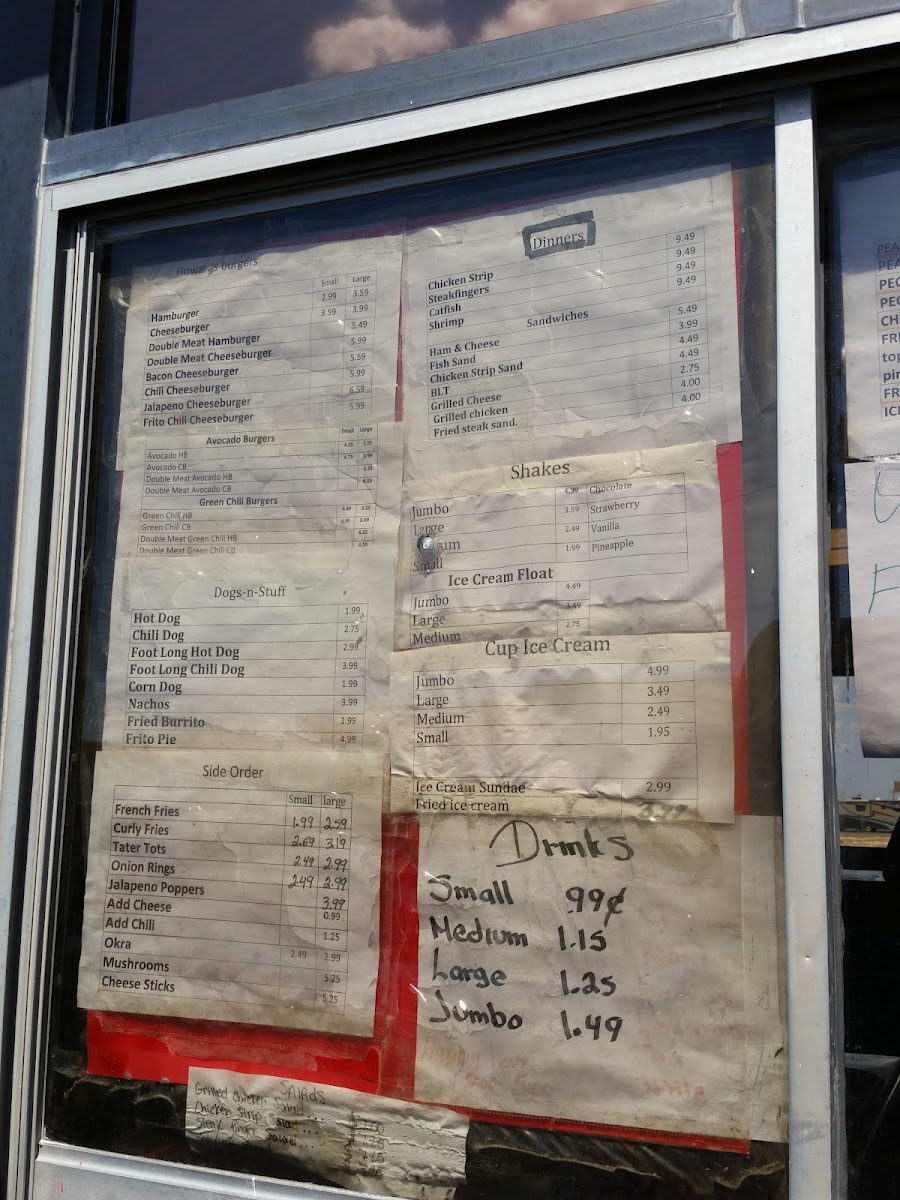 Howards burgers
Small Large
Hamburger 2.99 3.59
Cheeseburger 3.59 3.99
Double Meat Hamburger 5.49
Double Meat Cheeseburger 5.99
Bacon Cheeseburger 5.59
Chili Cheeseburger 5.99
Jalapeno Cheeseburger 6.59
Frito Chili Cheeseburger 5.99
Avocado Burgers
Small Large
Avocado HB 4.25 5.25
Avocado CB 4.75 5.99
Double Meat Avocado HB 6.25
Double Meat Avocado CB 6.59
Green Chili Burgers
Green Chili HB 5.25
Green Chili CB 5.99
Double Meat Green Chili HB 6.25
Double Meat Green Chili CB 6.59
Dogs-n-Stuff
Hot Dog 1.99
Chili Dog 2.75
Foot Long Hot Dog 2.99
Foot Long Chili Dog 3.99
Corn Dog 1.99
Nachos 3.99
Fried Burrito 1.99
Frito Pie 4.99
Side Order
Small large
French Fries 1.99 2.59
Curly Fries 2.69 3.19
Tater Tots 2.49 2.99
Onion Rings 2.49 2.99
Jalapeno Poppers 3.99
Add Cheese 0.99
Add Chili 1.25
Okra 2.49 2.99
Mushrooms 5.25
Cheese Sticks 5.25
SAlAds
Grilled chicken Salad
Chicken Strip Salad
Steak finger Salad
Dinners
Chicken Strip 9.49
Steakfingers 9.49
Catfish 9.49
Shrimp 9.49
Sandwiches
Ham & Cheese 5.49
Fish Sand 3.99
Chicken Strip Sand 4.49
BLT 4.49
Grilled Cheese 2.75
Grilled chicken 4.00
Fried steak sand. 4.00
Shakes
Jumbo 4.39 Chocolate
Large 3.59 Strawberry
2.49 Vanilla
Small 1.99 Pineapple
Ice Cream Float
Jumbo 4.49
Large 3.49
Medium 2.75
Cup Ice Cream
Jumbo 4.99
Large 3.49
Medium 2.49
Small 1.95
Ice Cream Sundae 2.99
Fried ice cream
Drinks
Small .99¢
Medium 1.15
Large 1.25
Jumbo 1.49